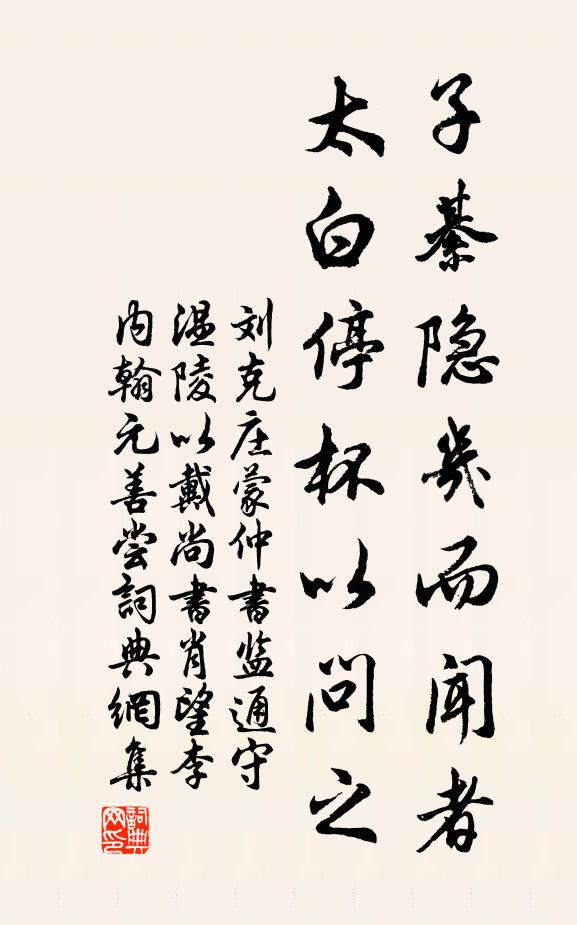 子綦隐几而闻者
太白停杯以问之
刘克庄蒙仲书监通守
温陵以戴尚書肖望李
内翰元善尝詞典網集
詞典網印